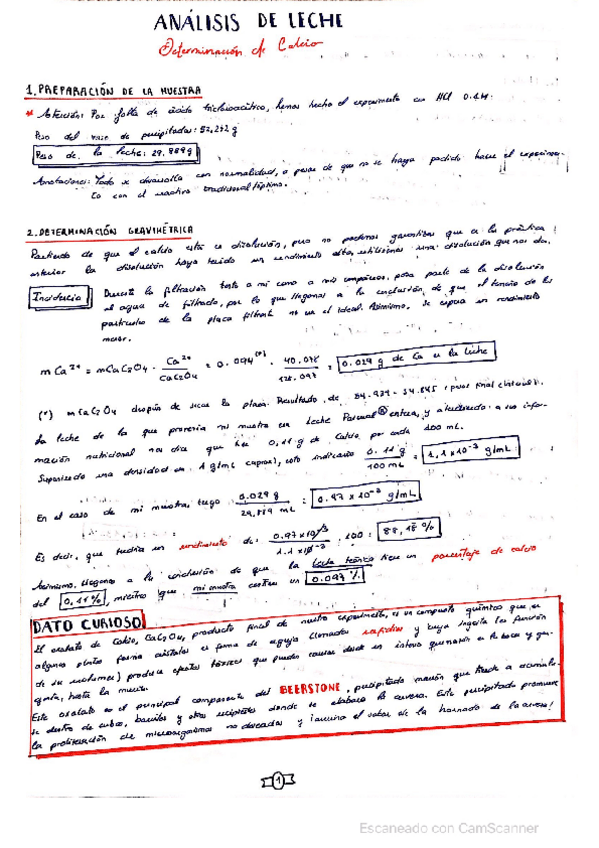 ANÁLISIS DE LECHE
Determinación de Calcio
1. PREPARACIÓN DE LA MUESTRA
* Atención: Por falta de ácido tricloroacético, hemos hecho el experimento con HCl 0.1M.
Peso del vaso de precipitados: 52,272 g
Peso de la leche: 29.889g
Anotaciones: Todo se desarrolla con normalidad, a pesar de que no se haya podido hacer el experimen-
to con el reactivo tradicional/óptimo.
2. DETERMINACIÓN GRAVIMÉTRICA
Partiendo de que el calcio está en disolución, pero no podemos garantizar que en la práctica
anterior la disolución haya tenido un rendimiento alto, utilizamos una disolución que nos da.
Incidencia
Durante la filtración tanto a mi como a mis compañeros, pasa parte de la disolución
al agua de filtrado, por lo que llegamos a la conclusión de que el tamaño de las
partículas de la placa filtrante no es el ideal. Asimismo, se espera un rendimiento
menor.
mCa²⁺ = mCaC₂O₄ · Ca²⁺/CaC₂O₄ = 0.094(*) · 40.078/128.097 = 0.029 g de Ca en la leche
(*) mCaC₂O₄ después de secar la placa. Resultado de 34.939 - 34.845 (peso final
La leche de la que proviene mi muestra es Leche Pascual® entera, y atendiendo a su infor-
mación nutricional nos dice que hay 0,11 g de Calcio por cada 100 mL.
Suponiendo una densidad de 1 g/mL esto indicaría 0.11 g/100 mL = 1,1 x 10⁻³ g/mL
En el caso de mi muestra, tengo 0.029 g/29,889 mL = 0.97 x 10⁻³ g/mL
Es decir, que tendría un rendimiento de: 0.97 x 10⁻³/1.1 x 10⁻³ · 100 = 88,18 %
Asimismo, llegamos a la conclusión de que la leche teórica tiene un porcentaje de calcio
del 0,11%, mientras que mi muestra contiene un 0.097 %
DATO CURIOSO
El oxalato de Calcio, CaC₂O₄, producto final de nuestro experimento, es un compuesto químico que en
algunas plantas forma cristales en forma de aguja llamados rafidios y cuya ingesta (en función
de su volumen) produce efectos tóxicos que pueden causar desde un intenso quemazón en la boca y gar-
ganta, hasta la muerte.
Este oxalato es el principal componente del BEERSTONE, precipitado marrón que tiende a acumular-
se dentro de cubas, barriles y otros recipientes donde se elabora la cerveza. Este precipitado promueve
la proliferación de microorganismos no deseados y ¡arruina el sabor de la hornada de la cerveza!
1
Escaneado con CamScanner